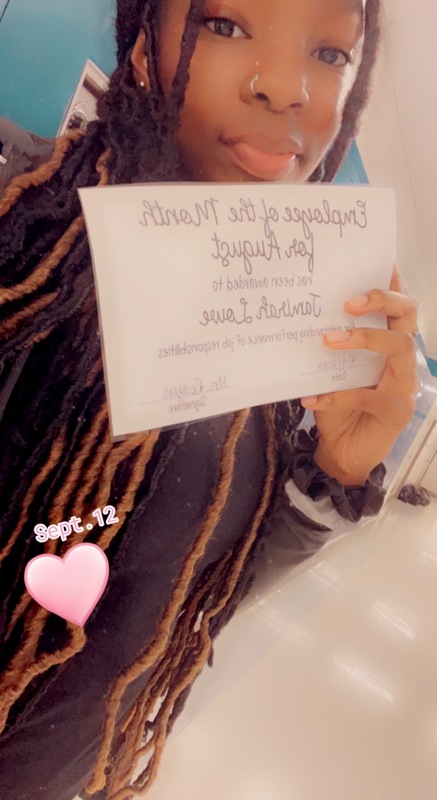 Employee of the Month
for August
has been awarded to
Jamirah Lowe
For outstanding performance of job responsibilities
Mrs.
Signature
Date
Sept.12